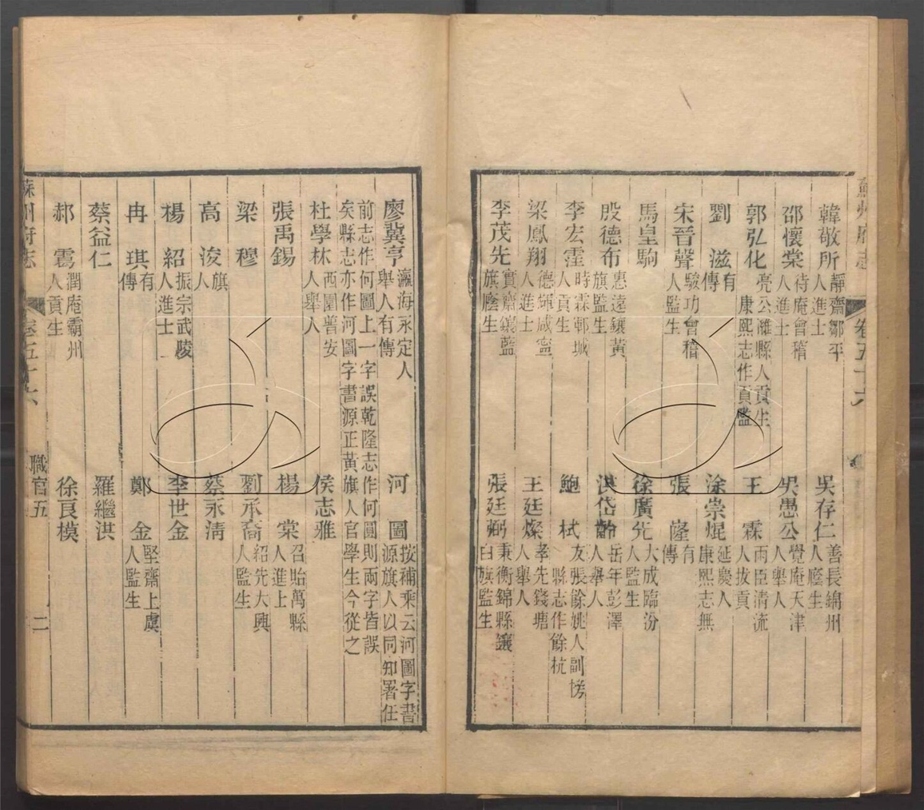 韓敬所 靜齋鄒平人進士 吳存仁 善長綿州人廕生
邵懷棠 待庵會稽人進士 吳愚公 覺庵天津人舉人
郭弘化 亮公濰縣人貢生康熙志作貢監 王霖 雨臣清流人拔貢
劉滋 有傳 涂崇焜 延慶人康熙志無
宋晉聲 駿功會稽人監生 張隆 有傳
馬皇駒 徐廣先 大成臨汾人監生
殷德布 惠遠鑲黃旗監生 洪岱齡 岳年彭澤人舉人
李宏霔 時霖鄆城人貢生 鮑栻 友張餘姚人訓導縣志作餘杭
梁鳳翔 德輝咸寧人進士 王廷燦 孝先錢塘人舉人
李茂先 實齋鑲藍旗廕生 張廷弼 秉衡錦縣鑲白旗監生
廖冀亨 瀛海永定人舉人有傳 河圖 按補乘云河圖字書源旗人以同知署任
前志作何圖上一字誤乾隆志作何圖則兩字皆誤
矣縣志亦作河圖字書源正黃旗人官學生今從之
杜學林 西園普安人舉人 侯志雅
張禹錫 楊棠 召貽萬縣人進士
梁穆 劉承裔 紹先大興人監生
高浚 旗人 蔡永清
楊紹 振宗武陵人進士 李世金
冉琪 有傳 鄭金 堅齋上虞人監生
蔡益仁 羅繼洪
郝雲 潤庵霸州人貢生 徐良模
蘇州府志 卷五十六 職官五 二